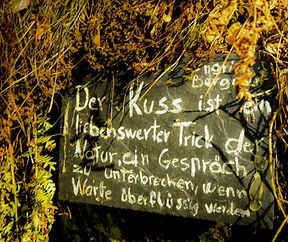 Ingrid
Bergman
Der Kuss ist ein
liebenswerter Trick der
Natur, ein Gespräch
zu unterbrechen, wenn
Worte überflüssig werden